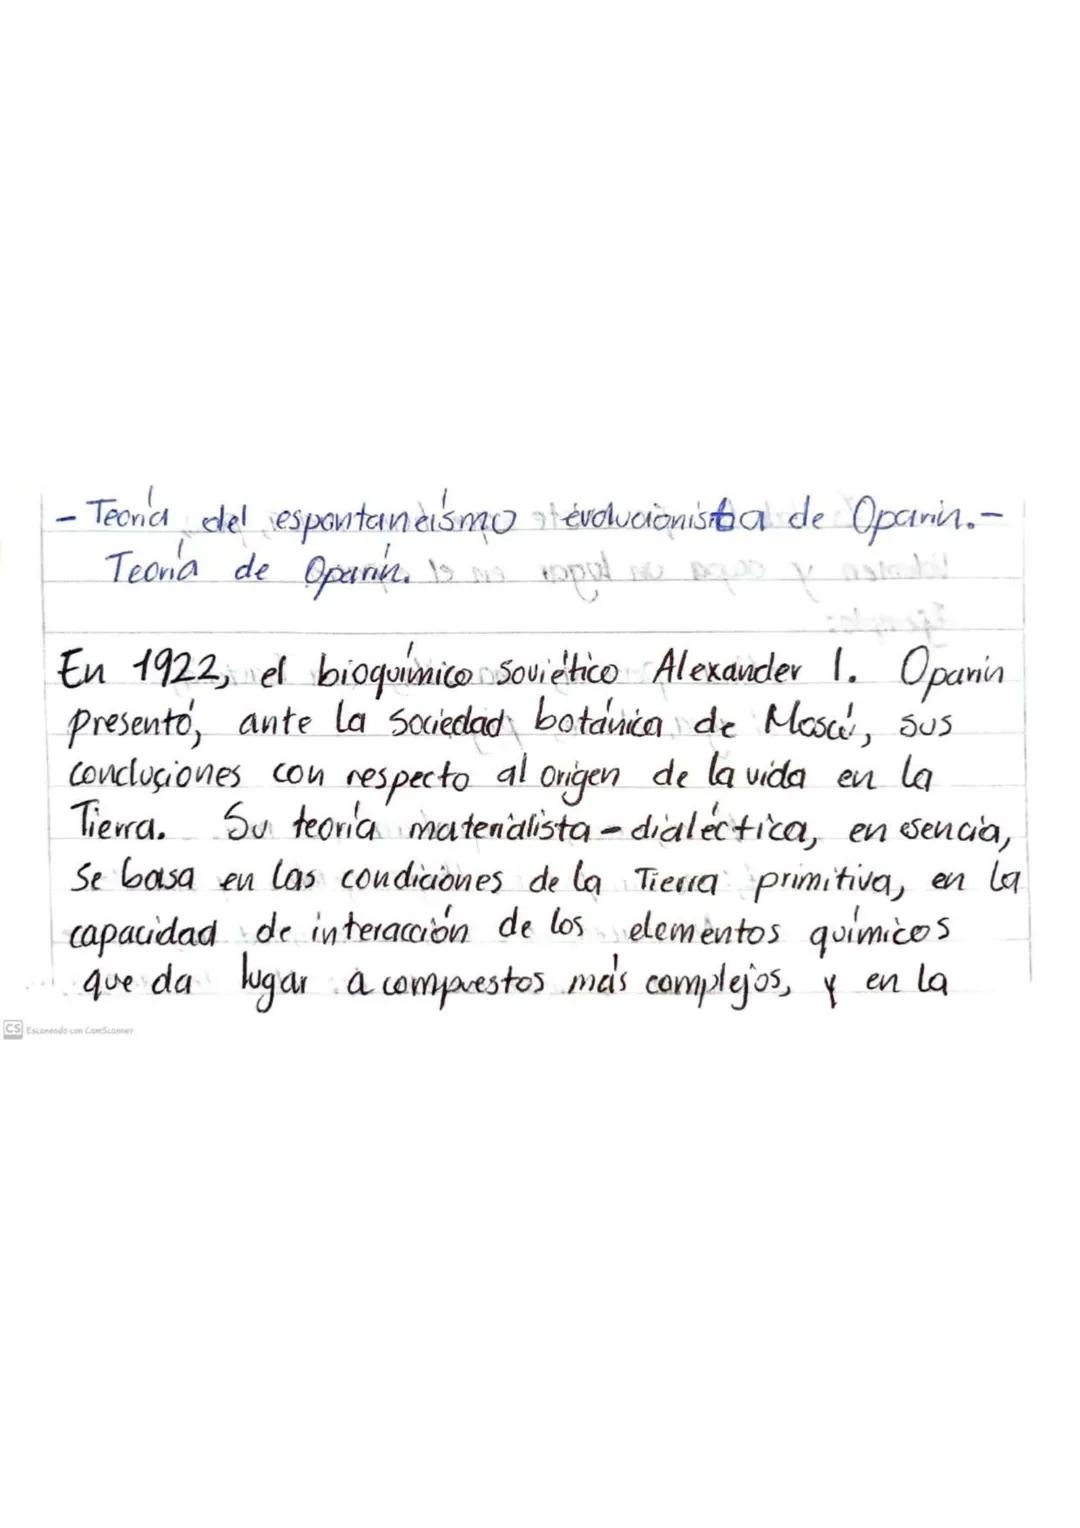 - Teoría del espontaneísmo evolucionista de Oparin.-
Teoría de Oparín.
En 1922, el bioquímico soviético Alexander I. Oparin
presentó, ante la Sociedad botánica de Moscú, sus
concluciones con respecto al origen de la vida en la
Tierra. Su teoría materialista - dialéctica, en esencia,
se basa en las condiciones de la Tierra primitiva, en la
capacidad de interacción de los elementos químicos
que da lugar a compuestos más complejos, y en la
CS Escaneado con CamScanner